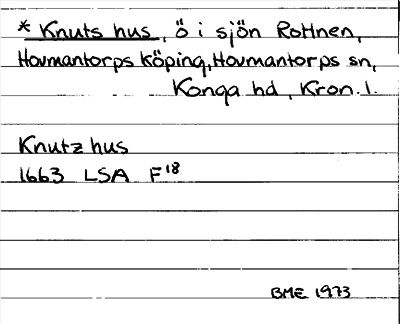 * Knuts hus, ö i sjön Rottnen,
Hovmantorps köping, Hovmantorps sn,
Konga hd, Kron. l.
Knutz hus
1663 LSA F18
BME 1973